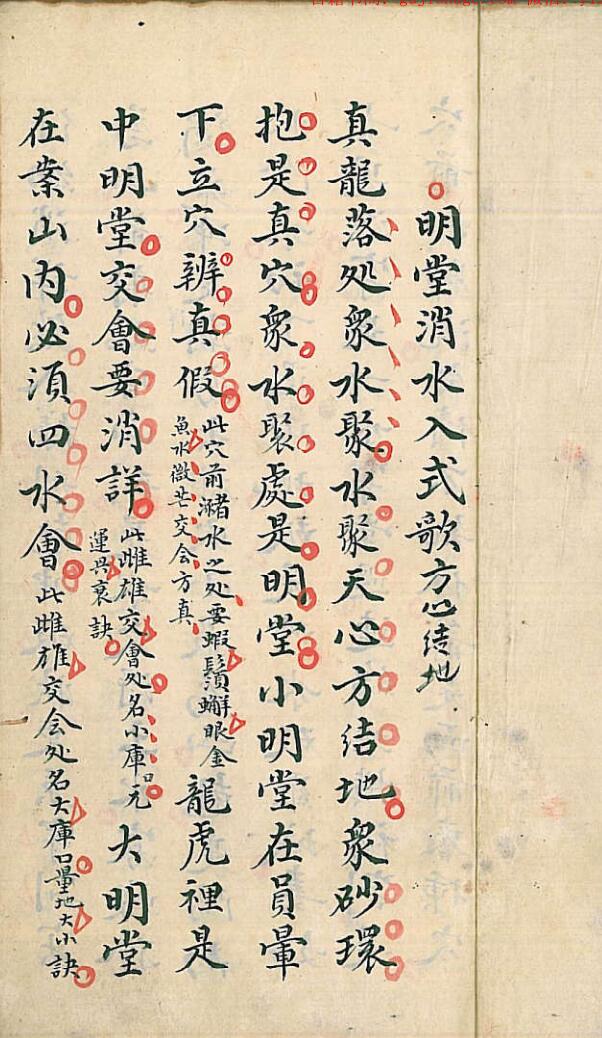 明堂消水入式歌方心结地
真龍落处衆水聚水聚天心方结地衆砂環
抱是真穴衆水聚處是明堂小明堂在員暈
下立穴辨真假此穴前瀦水之处要蝦鬚蠏眼金魚水微茫交会方真龍虎裡是
中明堂交會要消詳此雌雄交會处名小庫口元運興衰訣大明堂
在案山内必湏四水會此雌雄交会处名大庫口量地大小訣